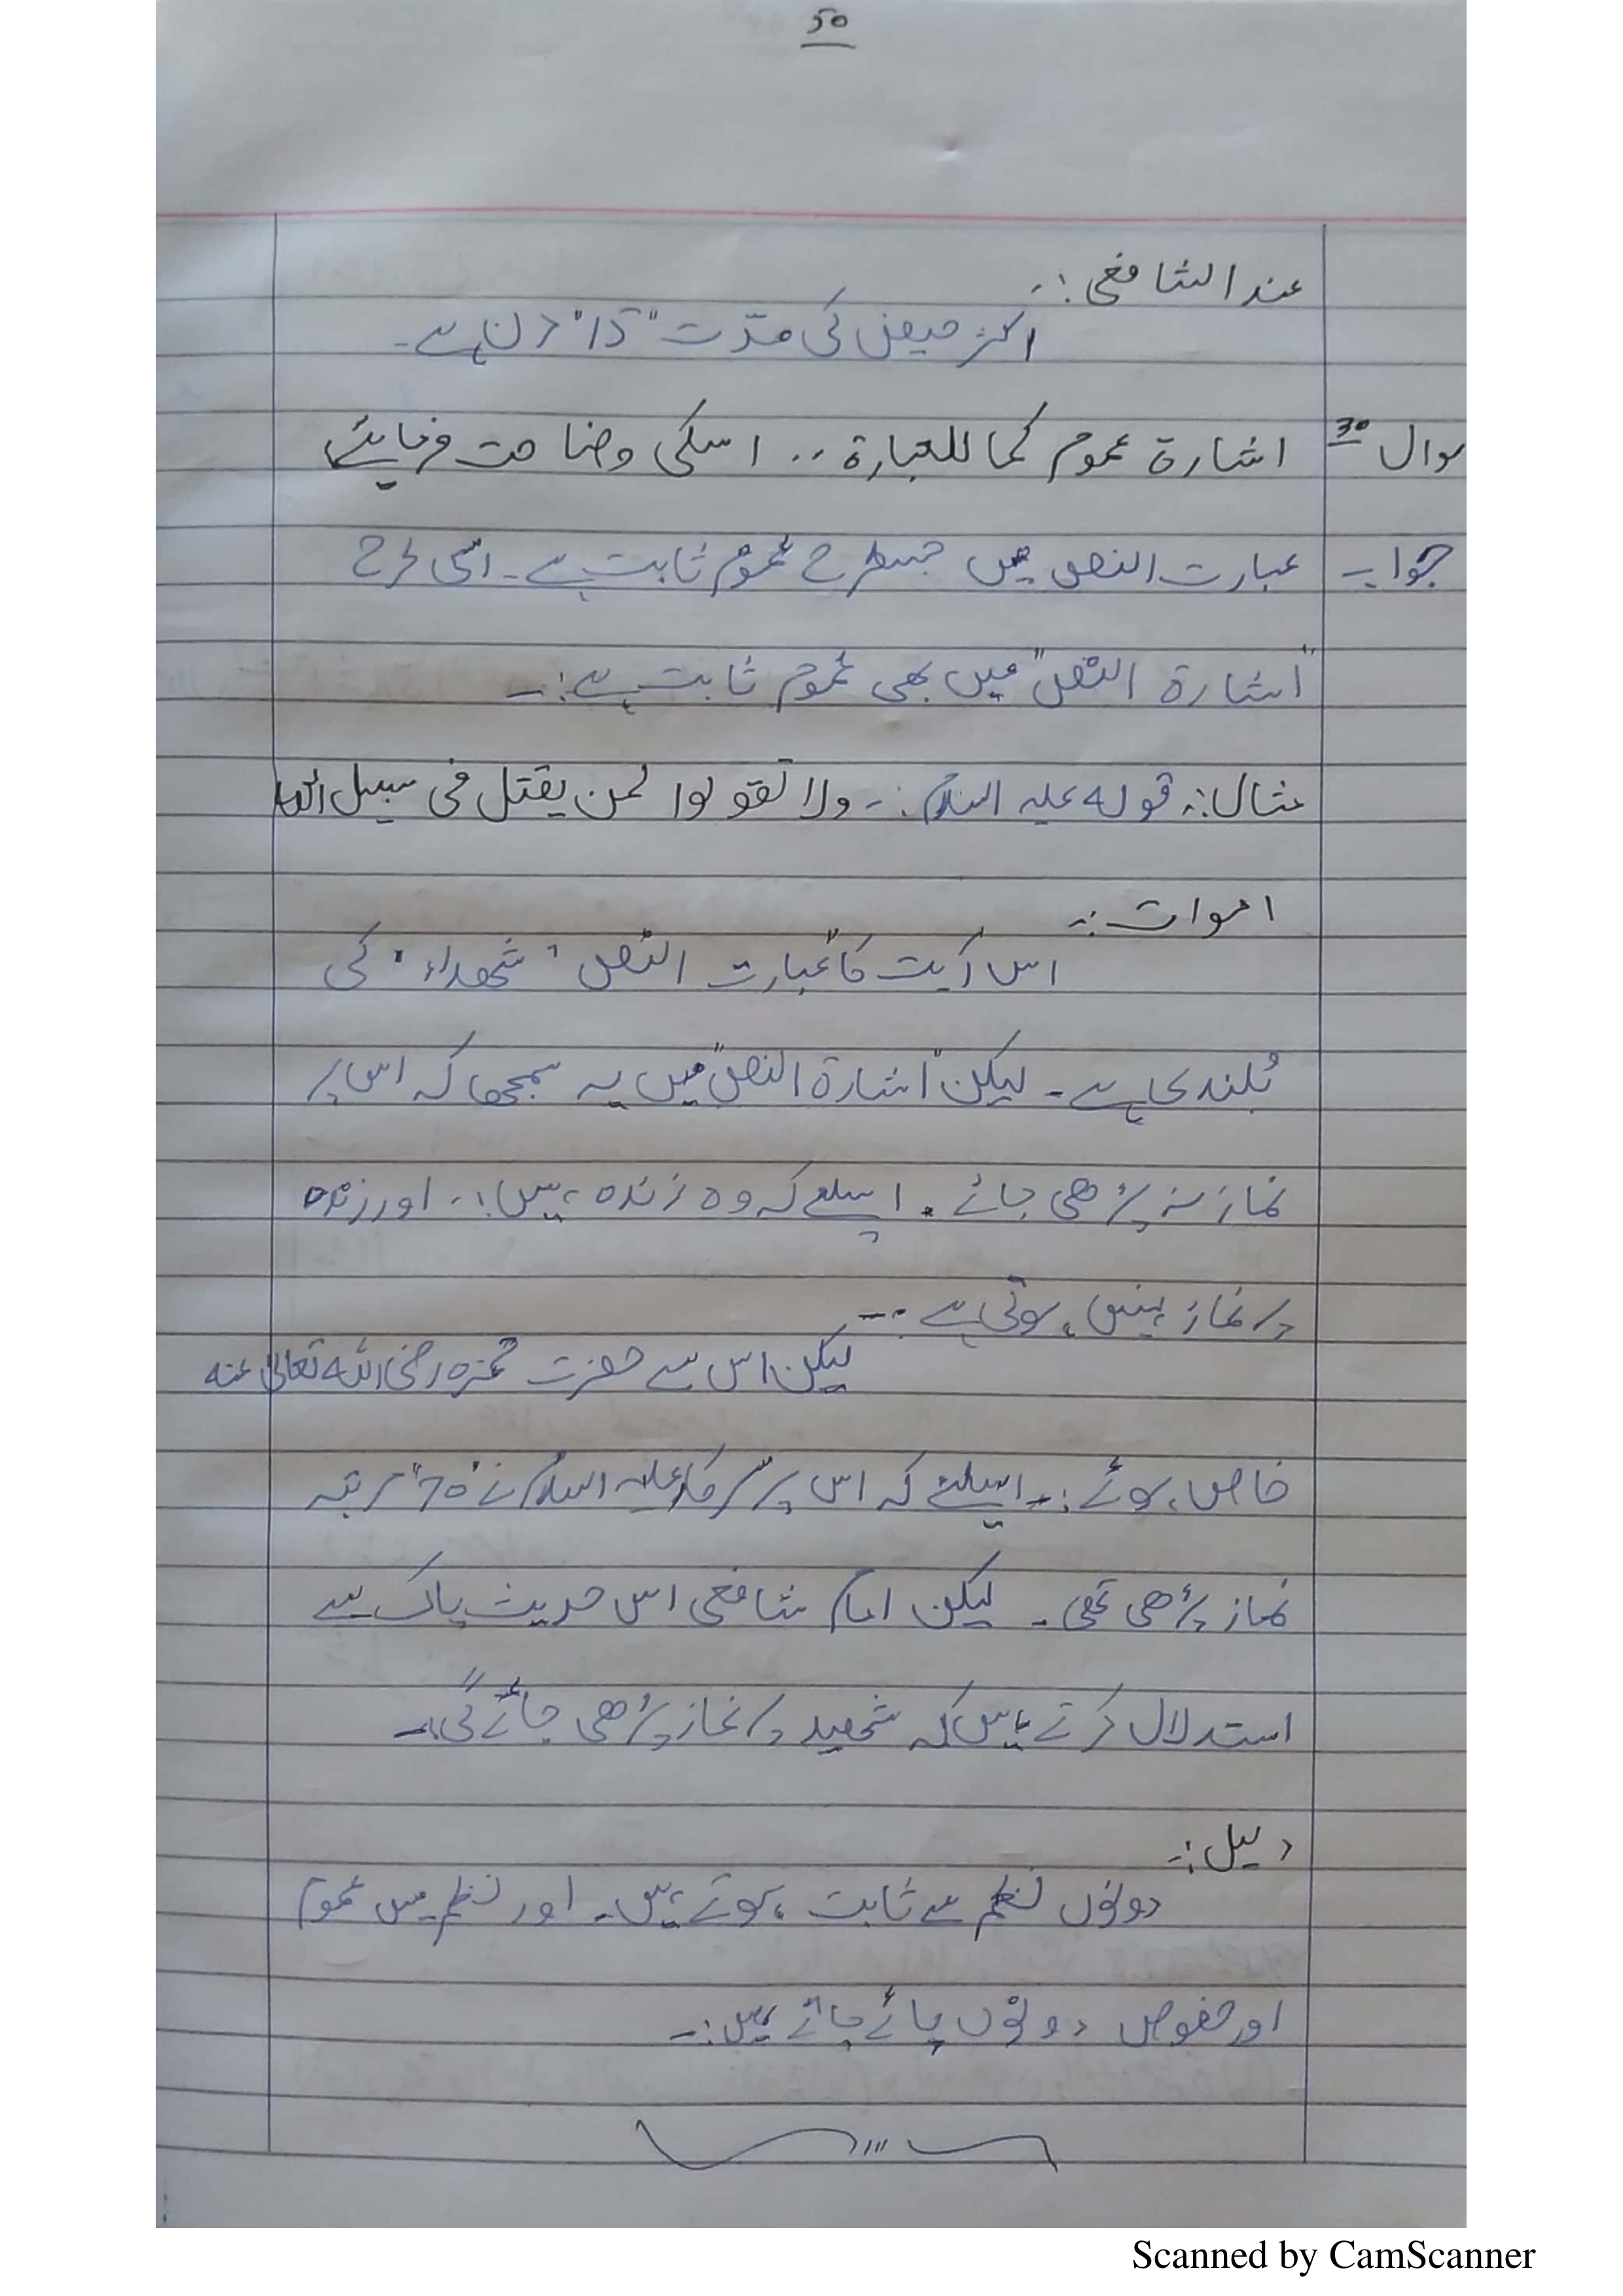 50
عند الشافعی :.
اکثر حیض کی مدّت "15" دن ہے۔
سوال 30 اشارۃ عموم کما للعبارۃ .. اسکی وضاحت فرمایئے
جواب عبارت النص میں جسطرح عموم ثابت ہے ۔ اسی طرح
"اشارۃ النص" میں بھی عموم ثابت ہے :۔
مثال :۔ قولہ علیہ السلام :۔ ولا تقولوا لمن یقتل فی سبیل اللہ
اموات :۔
اس آیت کا عبارت النص "شھداء" کی
بُلندی ہے ۔ لیکن "اشارۃ النص" میں یہ سمجھا کہ اس پر
نماز نہ پڑھی جائے ۔ اسلئے کہ وہ زندہ ہیں :. اور زندہ
پر نماز نہیں ہوتی ہے :۔
لیکن اس سے حضرت حمزہ رضی اللہ تعالی عنہ
خاص ہوئے :۔ اسلئے کہ اس پر سرکار علیہ السلام نے "70" مرتبہ
نماز پڑھی تھی ۔ لیکن امام شافعی اس حدیث پاک سے
استدلال کرتے ہیں کہ شھید پر نماز پڑھی جائے گی :۔
دلیل :۔
دونوں نظم سے ثابت ہوتے ہیں ۔ اور نظم میں عموم
اور خصوص دونوں پائے جاتے ہیں :۔
Scanned by CamScanner